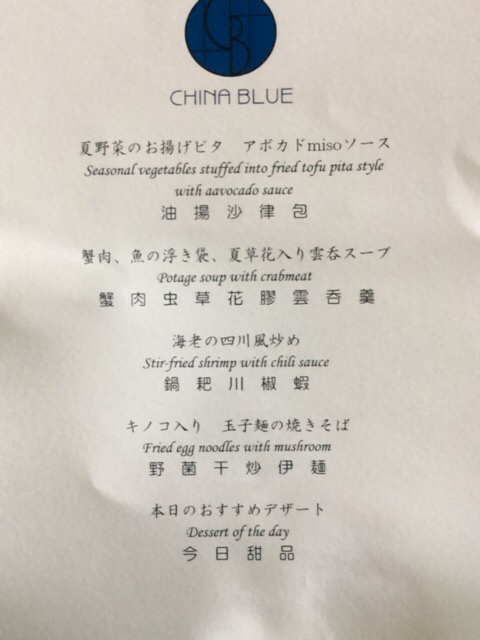 CB
CHINA BLUE
夏野菜のお揚げピタ　アボカドmisoソース
Seasonal vegetables stuffed into fried tofu pita style
with aavocado sauce
油揚沙律包
蟹肉、魚の浮き袋、夏草花入り雲呑スープ
Potage soup with crabmeat
蟹肉虫草花膠雲呑羹
海老の四川風炒め
Stir-fried shrimp with chili sauce
鍋耙川椒蝦
キノコ入り　玉子麺の焼きそば
Fried egg noodles with mushroom
野菌干炒伊麺
本日のおすすめデザート
Dessert of the day
今日甜品